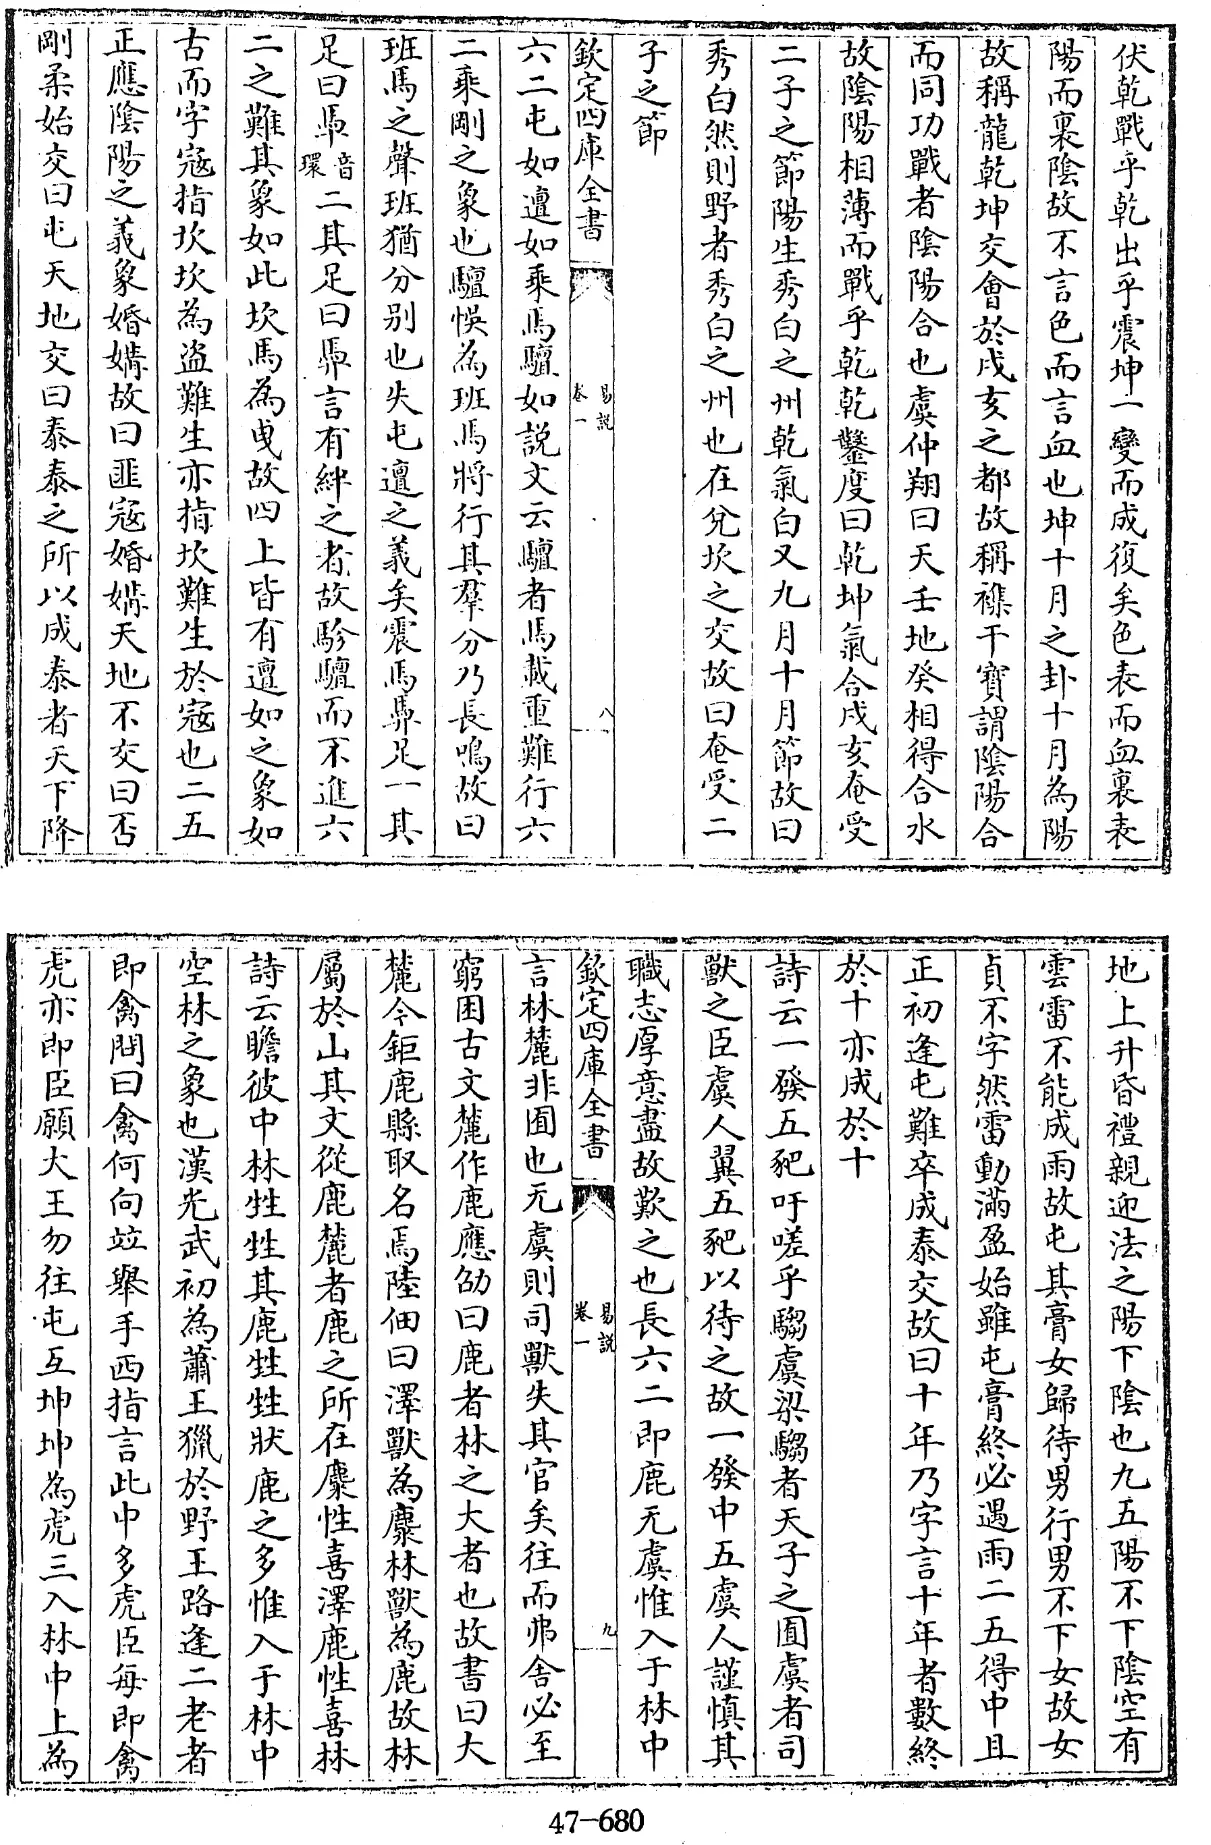 伏乾戰乎乾出乎震坤一變而成復矣色表而血裏表
陽而裏陰故不言色而言血也坤十月之卦十月為陽
故稱龍乾坤交會於戌亥之都故稱襍干寶謂陰陽合
而同功戰者陰陽合也虞仲翔曰天壬地癸相得合水
故陰陽相薄而戰乎乾乾鑿度曰乾坤氣合戌亥奄受
二子之節陽生秀白之州乾氣白又九月十月節故曰
秀白然則野者秀白之州也在兌坎之交故曰奄受二
子之節
欽定四庫全書
易説
卷一
八
六二屯如邅如乘馬驙如説文云驙者馬載重難行六
二乘剛之象也驙悞為班馬將行其羣分乃長鳴故曰
班馬之聲班猶分别也失屯邅之義矣震馬馵足一其
足曰馬
音環
二其足曰馵言有絆之者故駗驙而不進六
二之難其象如此坎馬為曳故四上皆有邅如之象如
古而字寇指坎坎為盗難生亦指坎難生於寇也二五
正應陰陽之義象婚媾故曰匪寇婚媾天地不交曰否
剛柔始交曰屯天地交曰泰泰之所以成泰者天下降
地上升昏禮親迎法之陽下陰也九五陽不下陰空有
雲雷不能成雨故屯其膏女歸待男行男不下女故女
貞不字然雷動滿盈始雖屯膏終必遇雨二五得中且
正初逢屯難卒成泰交故曰十年乃字言十年者數終
於十亦成於十
詩云一發五豝吁嗟乎騶虞梁騶者天子之囿虞者司
獸之臣虞人翼五豝以待之故一發中五虞人謹慎其
職志厚意盡故歎之也長六二即鹿无虞惟入于林中
欽定四庫全書
易説
卷一
九
言林麓非囿也无虞則司獸失其官矣往而弗舍必至
窮困古文麓作鹿應劭曰鹿者林之大者也故書曰大
麓今鉅鹿縣取名焉陸佃曰澤獸為麋林獸為鹿故林
屬於山其文從鹿麓者鹿之所在麋性喜澤鹿性喜林
詩云瞻彼中林甡甡其鹿甡甡狀鹿之多惟入于林中
空林之象也漢光武初為蕭王獵於野王路逢二老者
即禽問曰禽何向竝舉手西指言此中多虎臣每即禽
虎亦即臣願大王勿往屯互坤坤為虎三入林中上為
47-680